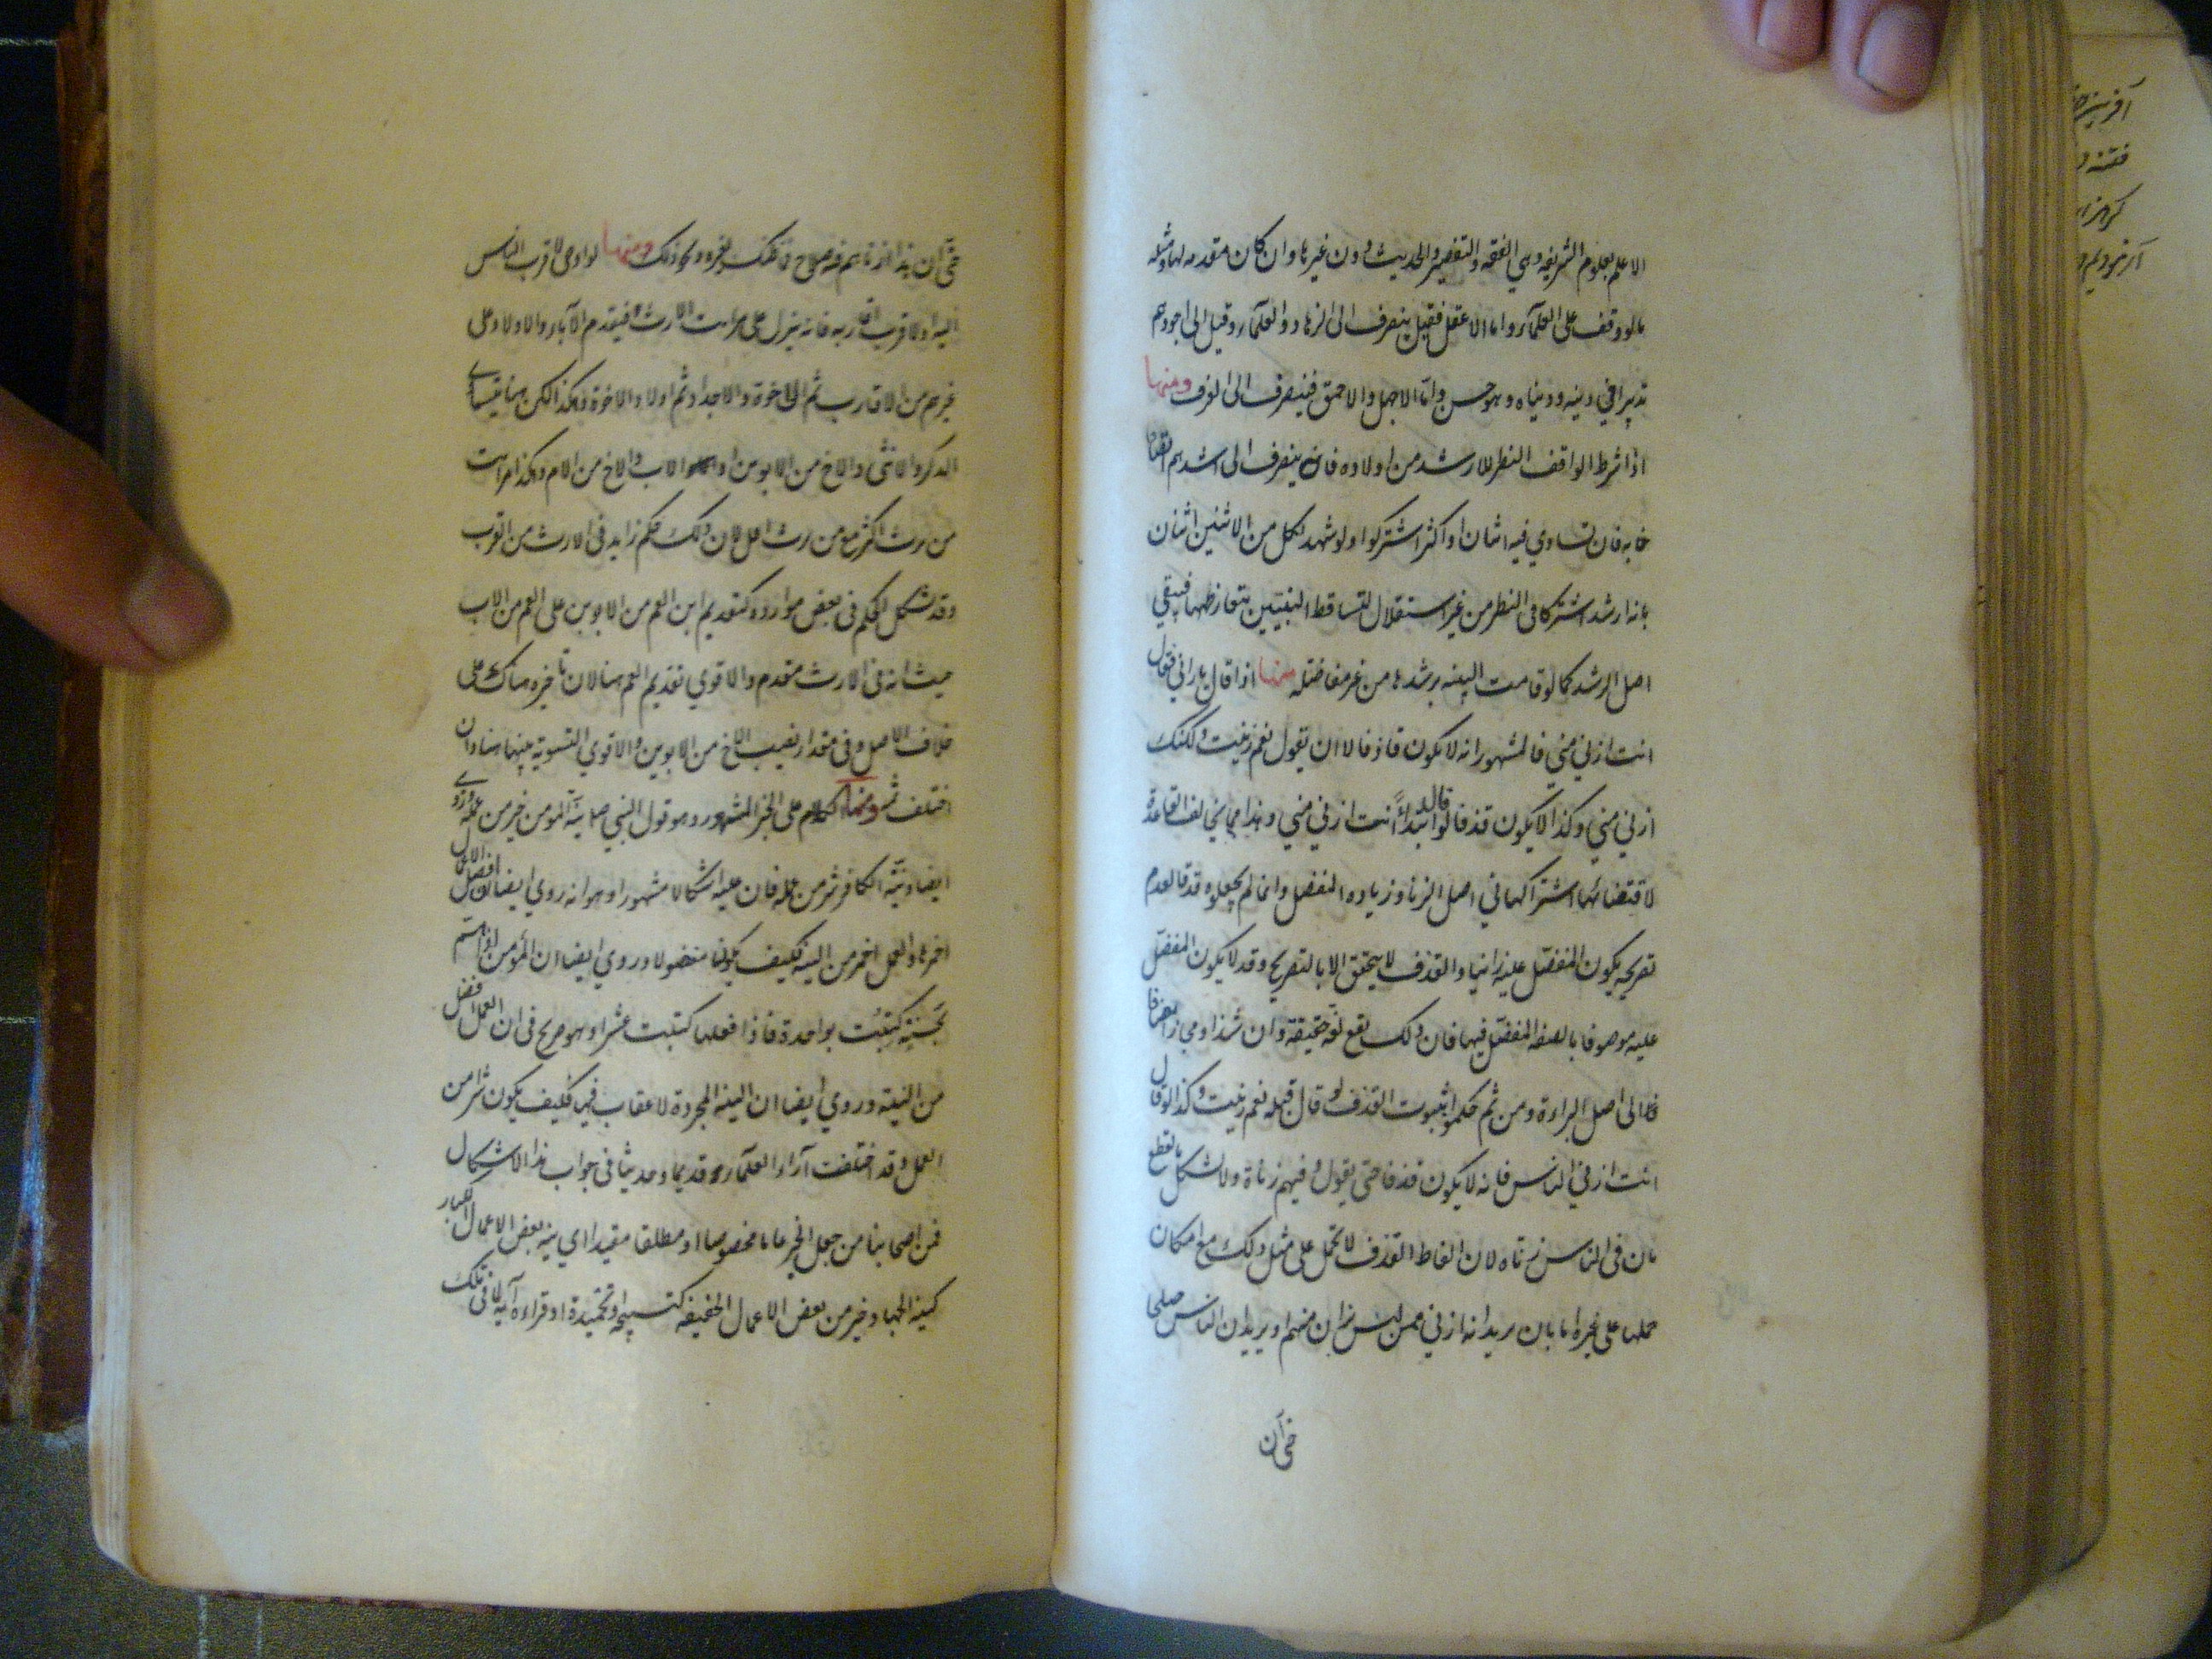 الاعلم بعلوم الشريعة وهي الفقه والتفسير والحديث دون غيرها وان كان مقدمه لها ومثله
مالو وقف على العلمآء واما الاعقل فقيل ينصرف الى الزهاد والعلمآء وقيل الى اجودهم
تدبيرا في دينه ودنياه وهو حسن وامّا الاجهل والاحمق فينصرف الى العرف ومنها
اذا شرط الواقف النظر للارشد من اولاده فانه ينصرف الى اشدهم اتصافا
به فان تساوي فيه اثنان او اكثر اشتركوا ولو شهد لكل من الاثنين اثنان
بانه ارشد اشتركا في النظر من غير استقلال لتساقط البينتين بتعارضهما فيبقي
اصل الرشد كما لو قامت البينه برشدها من غير مفاضله منها اذا قال يا زاني فتقول
انت ازني مني فالمشهور انه لا يكون قاذفا الا ان تقول نعم زنيت ولكنك
ازني مني وكذا لا يكون قذفا لو قال ابتداءً انت ازني مني وهذا مما يخالف القاعدة
لاقتضائها اشتراكهما في اصل الزنا وزيادة المفضل وانما لم يجعلوه قذفا لعدم
تصريحه بكون المفضّل عليه زانيا والقذف لا يتحقق الا بالتصريح وقد لا يكون المفضّل
عليه موصوفا بالصفة المفضّل فيها فان ذلك يقع لغة حقيقة وان شذ او مجازا
الى اصل البراءة ومن ثم حكموا بثبوت القذف لو قال قبله نعم زنيت وكذا لو قال
انت ازني الناس فانه لا يكون قذفا حتى يقول وفيهم زناة ولا يشكل بالقطع
بان في الناس زناه لان الفاظ القذف لا تحمل على مثل ذلك مع امكان
حملها على غيره اما بان يريد انه ازني ممن ليس بزان منهم او يريد ان الناس
لو اوصى لاقرب الناس ومنها
اليه او لاقرب اقاربه فانه ينزل على مراتب الارث فيقدم الآباء والاولاد على
غيرهم من الاقارب ثم الى الاخوة والاجداد ثم اولاد الاخوة وهكذا لكن هنا يتساوي
الذكر والانثى والاخ من الابوين او الاب والاخ من الام وهكذا مراتب
من يرث اكثر مع من يرث اقل لان ذلك حكم زايد في الارث من القرب
وقد يشكل الحكم في بعض موارده كتقديم ابن العم من الابوين على العم من الاب
حيث انه في الارث مقدم والاقوي تقديم العم هنا لان تاخيره هناك على
خلاف الاصل وفي مقدار نصيب الاخ من الابوين والاقوي التسوية بينهما هنا وان
اختلف ثم ومنها الكلام على الخبر المشهور وهو قول النبي ص نيّة المومن خير من عمله وروي
ايضا ونيّة الكافر شر من عمله فان عليه اشكالا مشهورا وهو انه روي ايضا ان افضل الاعمال
احمزها والعمل احمز من النية فكيف يكون مفضولا وروي ايضا ان المؤمن اذا هم
بحسنة كتبت بواحدة فاذا فعلها كتبت عشرا وهو صريح في ان العمل افضل
من النية وروي ايضا ان النية المجردة لا عقاب فيها فكيف يكون شرا من
العمل وقد اختلفت آراء العلمآء قديما وحديثا في جواب هذا الاشكال
فمن اصحابنا من جعل الخبر عاما مخصوصا او مطلقا مقيدا اي نية بعض الاعمال الكبار
كنية الجهاد خير من بعض الاعمال الخفيفه كتسبيحة او تحميدة او قراءة آية لما في تلك